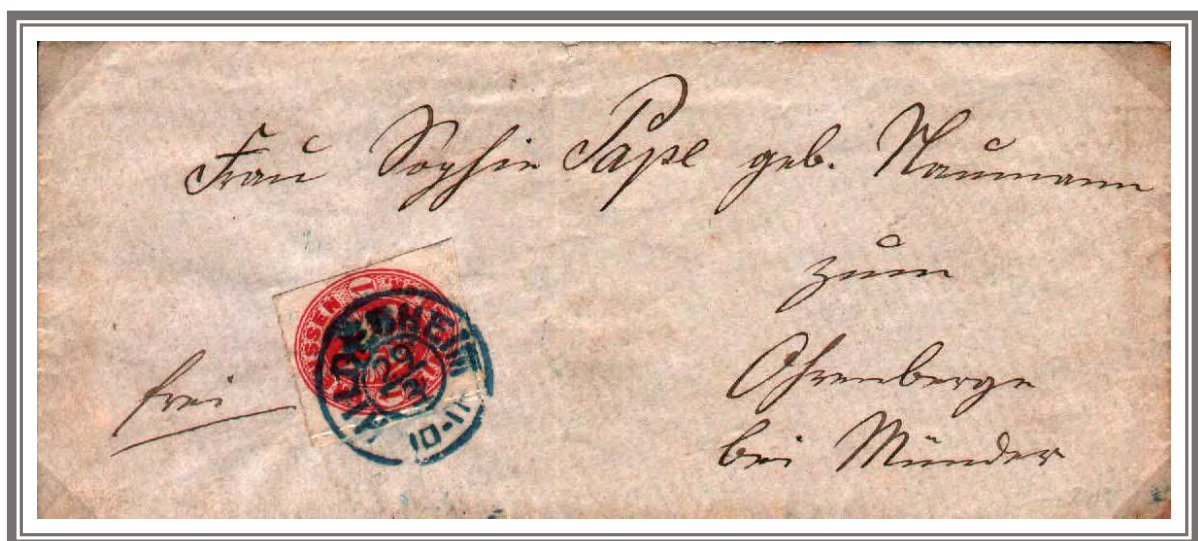 Frau Sophie Pape geb. Naumann
zum
Ohrenberge
bei Münder
frei
SSEN 1
HILDESHEIM
29
10-11